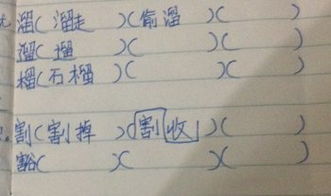 溜(溜走)(偷溜)( )
遛(遛)( )( )
榴(石榴)( )( )
割(割掉)(割收)( )
豁( )( )( )